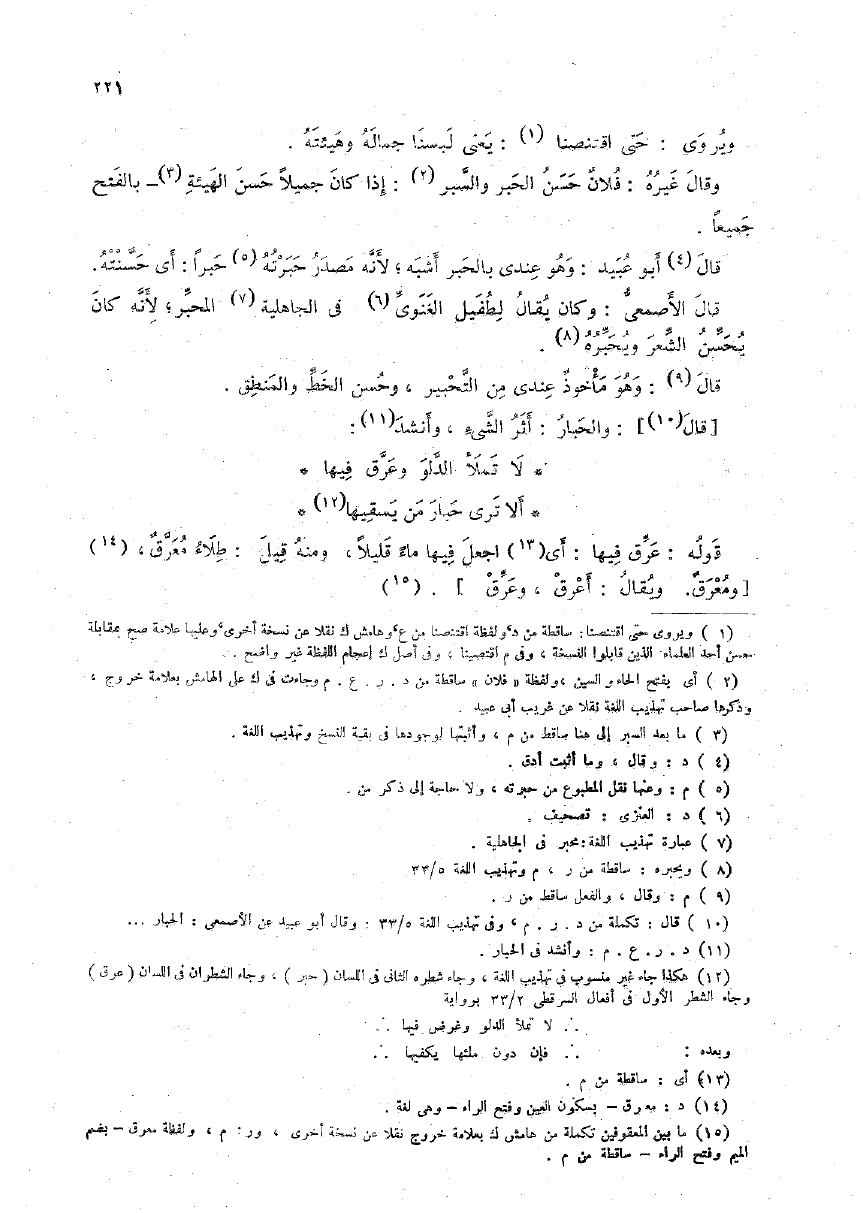 ٢٢١
ويُروَى : حَتّى اقتنصنا (١) : يَعنى لَبِسنَا جمالَهُ وهَيئتَهُ .
وقالَ غَيرُهُ : فُلانٌ حَسَنُ الحَبر والسَّبر (٢) : إِذا كانَ جميلاً حَسنَ الهَيئةِ (٣) – بالفَتح
جَميعاً .
قالَ (٤) أَبو عُبَيد : وَهُو عِندى بالحَبر أَشبَه ؛ لأَنَّه مَصدَرُ حَبَرْتُهُ (٥) حَبراً : أَى حَسَّنْتُهُ .
قالَ الأَصمعىُّ : وكان يُقالُ لِطُفَيل الغَنَوىِّ (٦) فى الجاهلية (٧) المحبِّر ؛ لأَنَّه كانَ
يُحَسِّنُ الشِّعرَ ويُحَبِّرُهُ (٨) .
قالَ (٩) : وَهُوَ مَأْخوذٌ عِندى مِن التَّحْبير ، وحُسن الخَطِّ والمَنطِق .
[قالَ (١٠)] : والحَبارُ : أَثَرُ الشَّىءِ ، وأَنشدَ (١١) :
* لَا تَملَأْ الدَّلوَ وعَرِّق فِيها *
* أَلا تَرى حَبارَ مَن يَسقِيها (١٢) *
قَولُه : عَرِّق فِيها : أَى (١٣) اجعلَ فِيها ماءً قَليلاً ، ومنهُ قِيلَ : طِلَاءٌ مُعَرَّقٌ ، (١٤)
[ومُعْرَقٌ. ويُقالُ : أَعْرِقْ ، وعَرِّقْ ] . (١٥)
(١) ويروى حتى اقتنصنا : ساقطة من د ، ولفظة اقتنصنا من ع ، وهامش ك نقلا عن نسخة أخرى ، وعليها علامة صح بمقابلة
حسن أحد العلماء الذين قابلوا النسخة ، وفى م اقتصينا ، وفى أصل ك إعجام اللفظة غير واضح .
(٢) أى بفتح الحاء والسين ، ولفظة « فلان » ساقطة من د . ر . ع . م وجاءت فى ك على الهامش بعلامة خروج ،
وذكرها صاحب تهذيب اللغة نقلا عن غريب أبى عبيد .
(٣) ما بعد السبر إلى هنا ساقط من م ، وأثبتها لوجودها فى بقية النسخ وتهذيب اللغة .
(٤) د : وقال ، وما أثبت أدق .
(٥) م : وعنها نقل المطبوع من حبرته ، ولا حاجة إلى ذكر من .
(٦) د : العنزى : تصحيف .
(٧) عبارة تهذيب اللغة : محبر فى الجاهلية .
(٨) ويحبره : ساقطة من ر ، م وتهذيب اللغة ٣٣/٥
(٩) م : وقال ، والفعل ساقط من ر .
(١٠) قال : تكملة من د . ر . م ، وفى تهذيب اللغة ٣٣/٥ : وقال أبو عبيد عن الأصمعى : الحبار ...
(١١) د . ر . ع . م : وأنشد فى الحبار .
(١٢) هكذا جاء غير منسوب فى تهذيب اللغة ، وجاء شطره الثانى فى اللسان ( حبر ) ، وجاء الشطران فى اللسان ( عرق )
وجاء الشطر الأول فى أفعال السرقطى ٣٣/٢ برواية
.·. لا تملأ الدلو وغرض فيها .·.
وبعده : .·. فإن دون ملئها يكفيها .·.
(١٣) أى : ساقطة من م .
(١٤) د : معرق – بسكون العين وفتح الراء – وهى لغة .
(١٥) ما بين المعقوفين تكملة من هامش ك بعلامة خروج نقلا عن نسخة أخرى ، ور : م ، ولفظة معرق – بضم
الميم وفتح الراء – ساقطة من م .